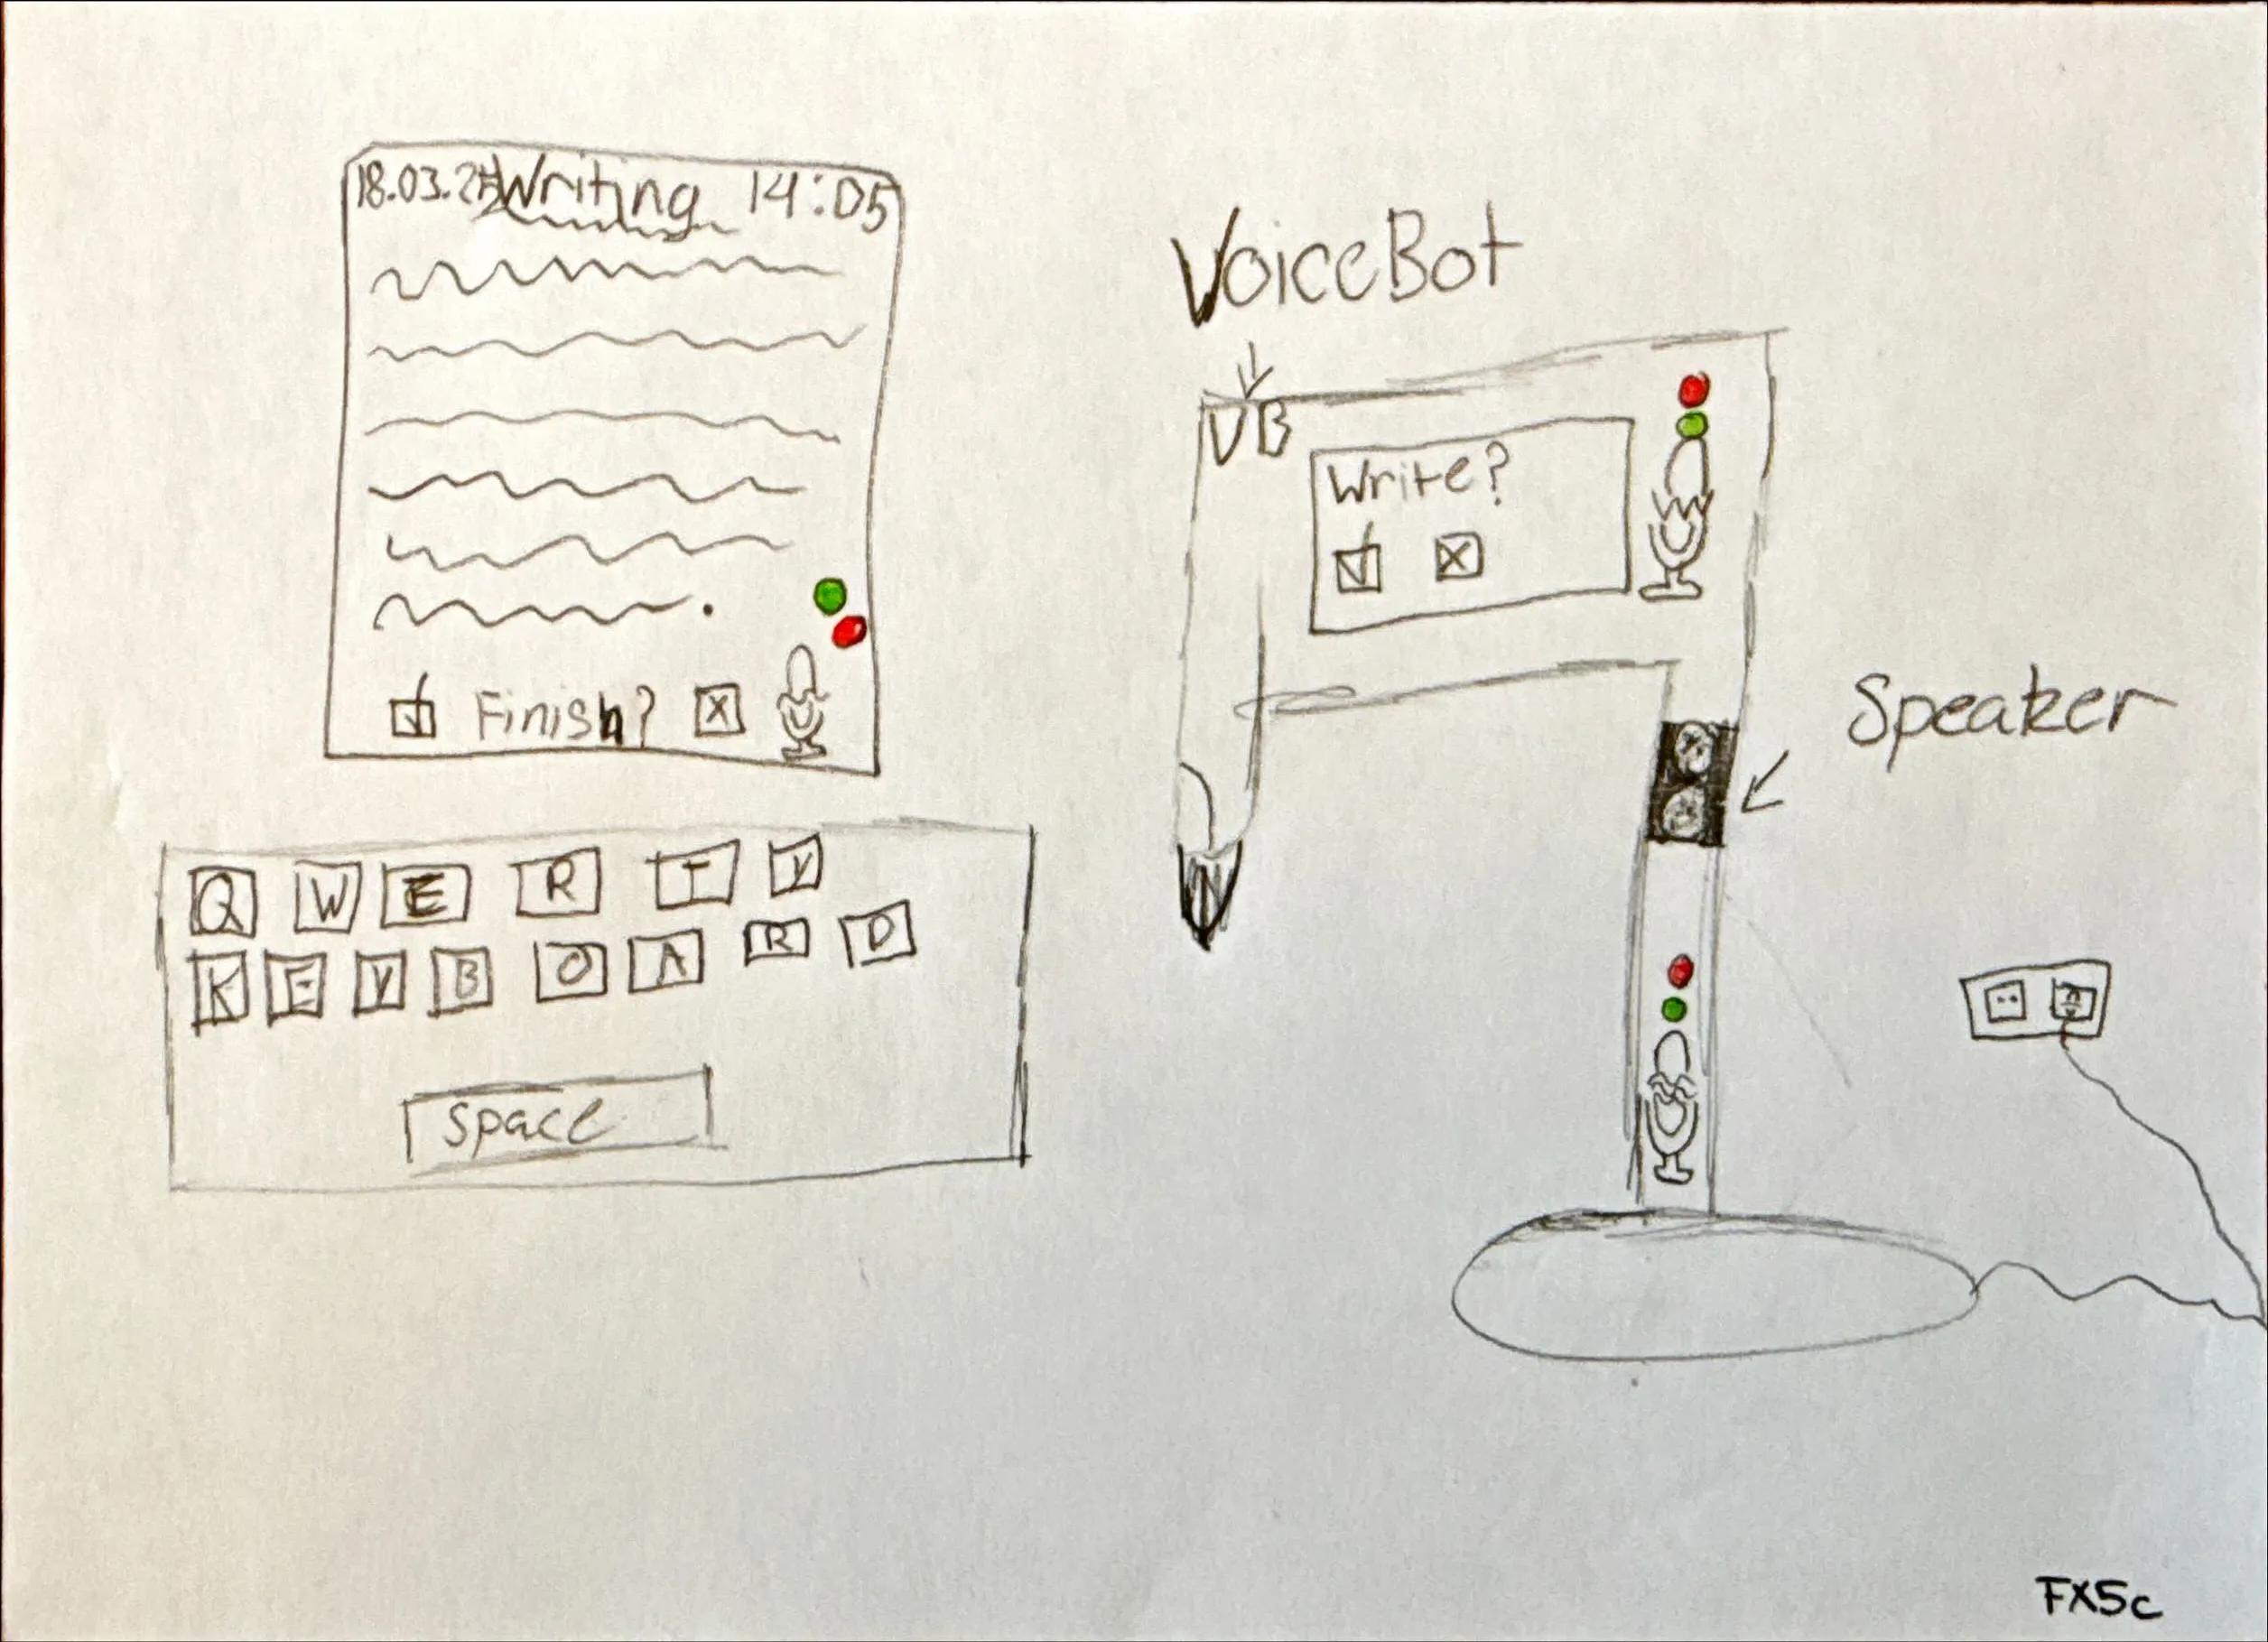 Writing 14:05
Finish?
Q W E R T Y
K E Y B O A R D
space
VoiceBot
VB
Write?
Speaker
FX5c